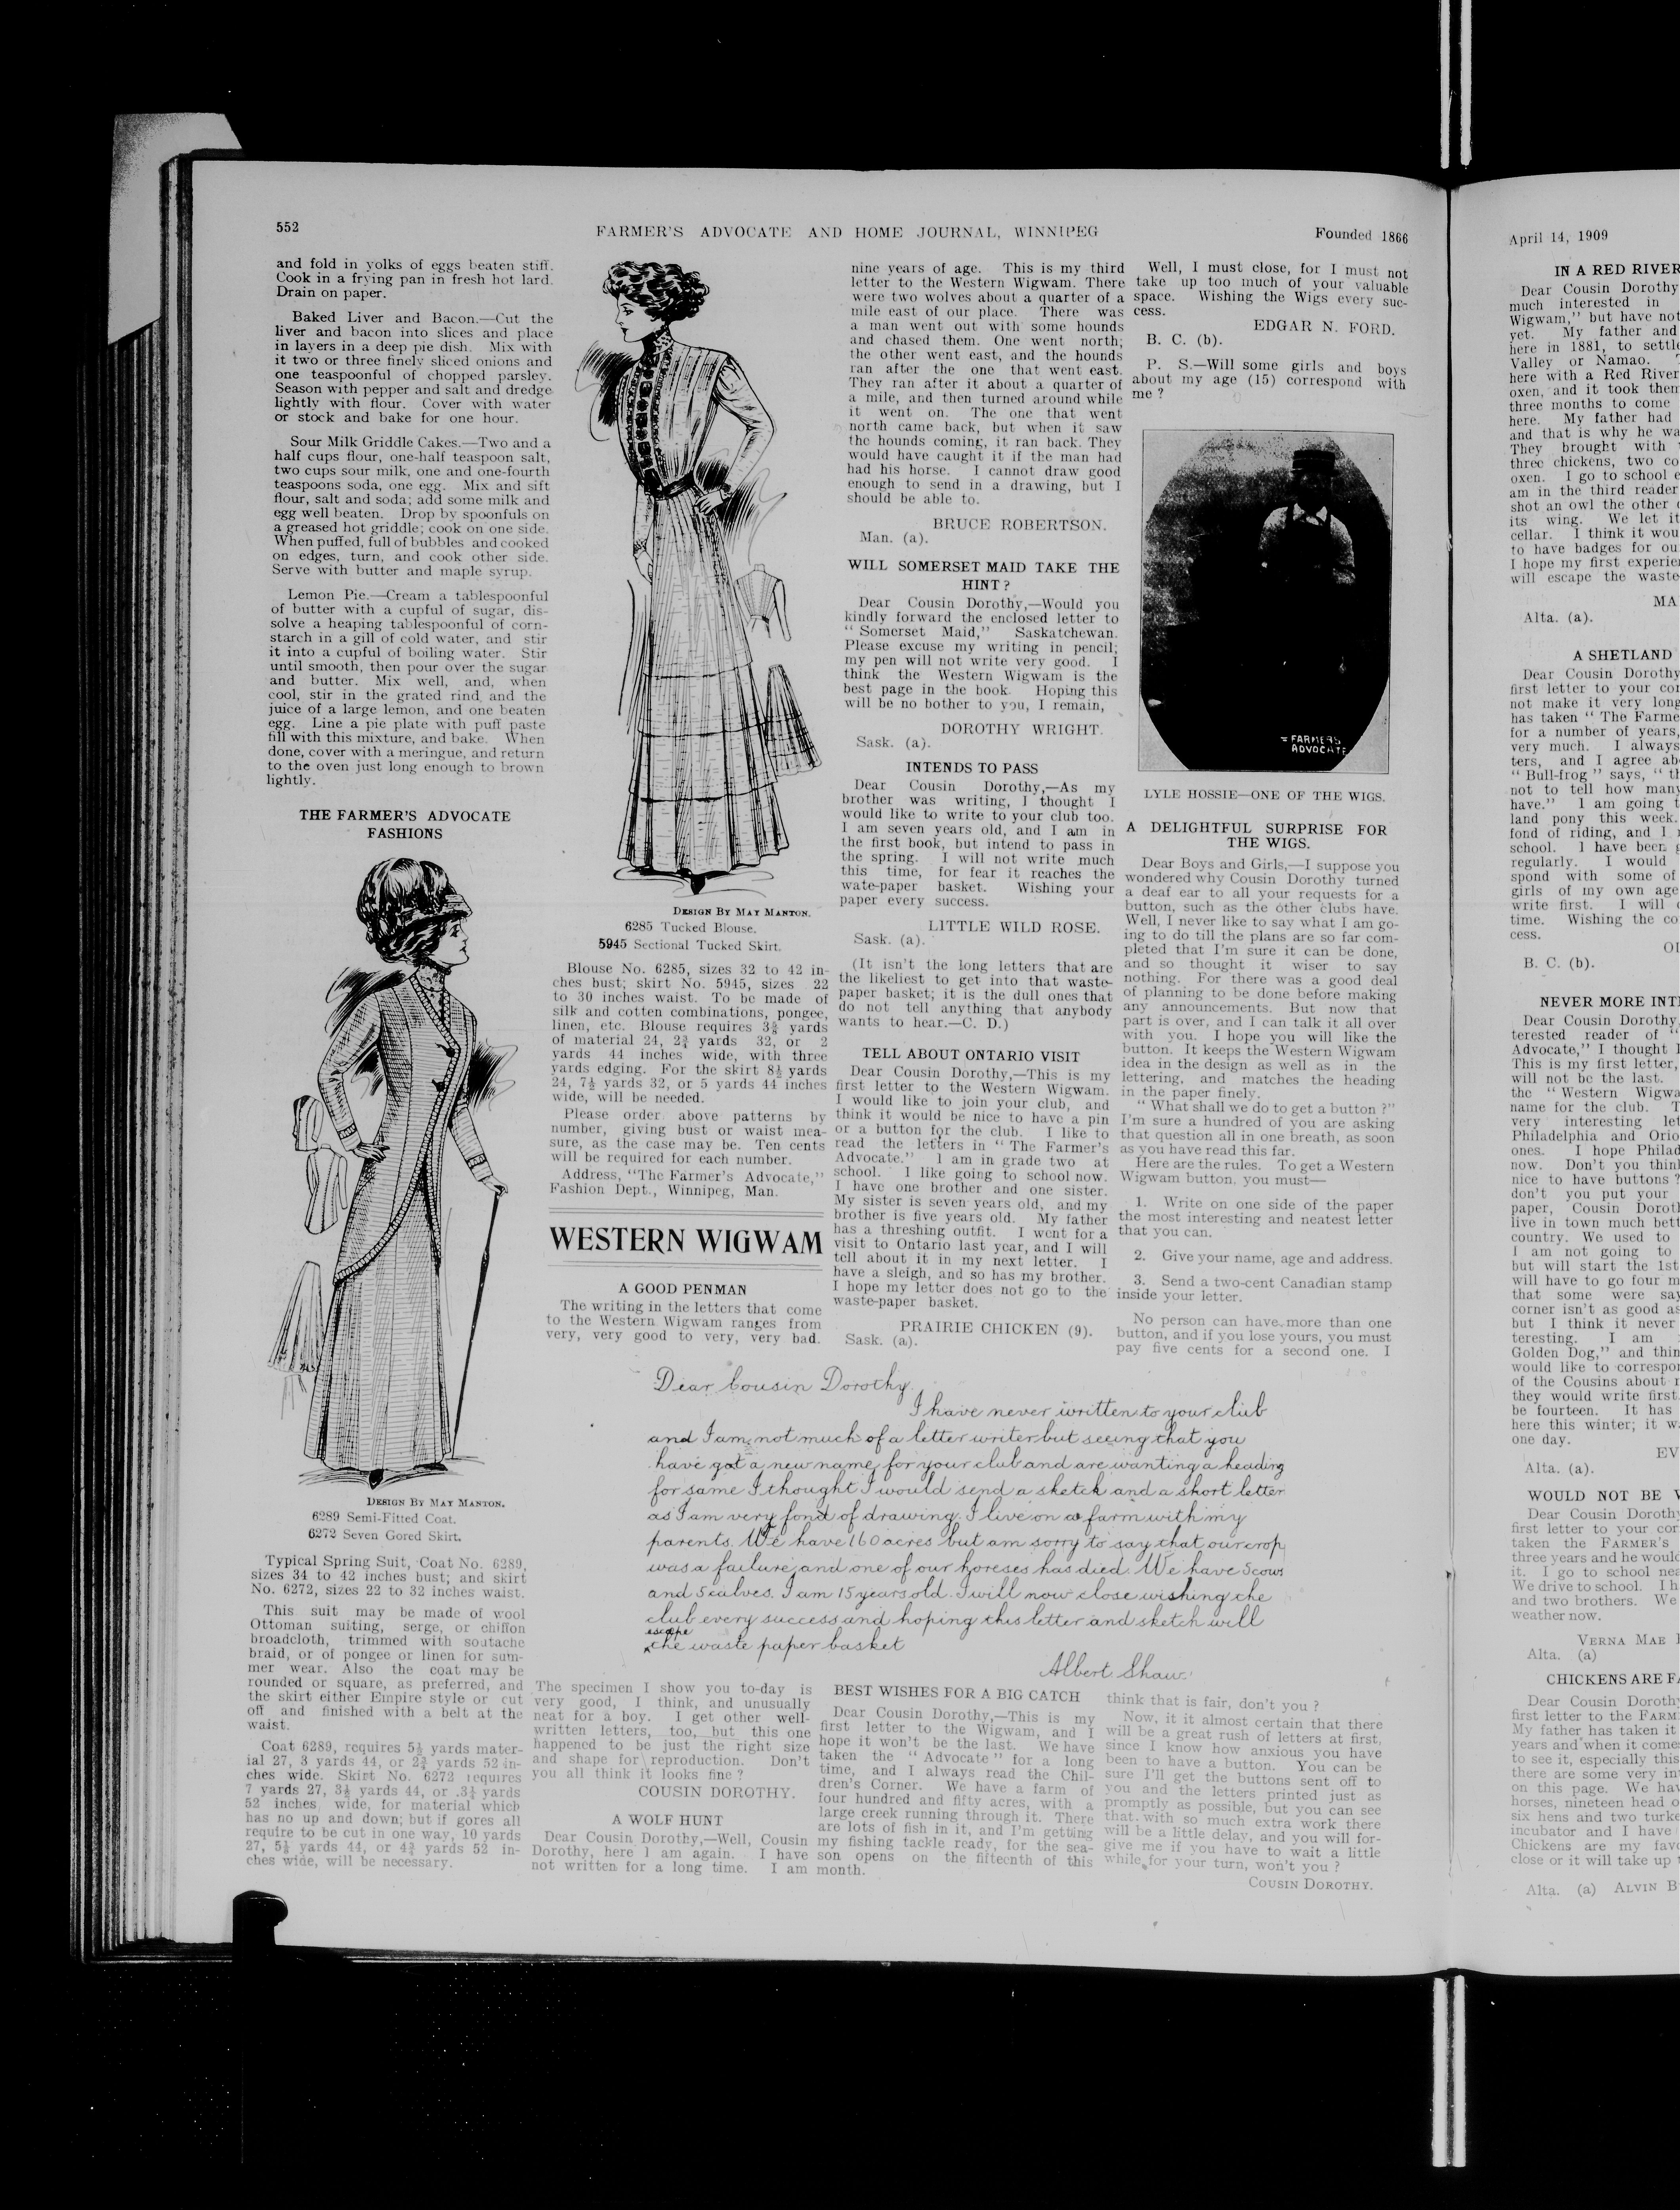 552
FARMER'S ADVOCATE AND HOME JOURNAL, WINNIPEG
Founded 1866
and fold in yolks of eggs beaten stiff.
Cook in a frying pan in fresh hot lard.
Drain on paper.
Baked Liver and Bacon.—Cut the
liver and bacon into slices and place
in layers in a deep pie dish. Mix with
it two or three finely sliced onions and
one teaspoonful of chopped parsley.
Season with pepper and salt and dredge
lightly with flour. Cover with water
or stock and bake for one hour.
Sour Milk Griddle Cakes.—Two and a
half cups flour, one-half teaspoon salt,
two cups sour milk, one and one-fourth
teaspoons soda, one egg. Mix and sift
flour, salt and soda; add some milk and
egg well beaten. Drop by spoonfuls on
a greased hot griddle; cook on one side.
When puffed, full of bubbles and cooked
on edges, turn, and cook other side.
Serve with butter and maple syrup.
Lemon Pie.—Cream a tablespoonful
of butter with a cupful of sugar, dis-
solve a heaping tablespoonful of corn-
starch in a gill of cold water, and stir
it into a cupful of boiling water. Stir
until smooth, then pour over the sugar
and butter. Mix well, and, when
cool, stir in the grated rind and the
juice of a large lemon, and one beaten
egg. Line a pie plate with puff paste
fill with this mixture, and bake. When
done, cover with a meringue, and return
to the oven just long enough to brown
lightly.
THE FARMER'S ADVOCATE
FASHIONS
DESIGN BY MAY MANTON.
6289 Semi-Fitted Coat.
6272 Seven Gored Skirt.
Typical Spring Suit, Coat No. 6289,
sizes 34 to 42 inches bust; and skirt
No. 6272, sizes 22 to 32 inches waist.
This suit may be made of wool
Ottoman suiting, serge, or chiffon
broadcloth, trimmed with soutache
braid, or of pongee or linen for sum-
mer wear. Also the coat may be
rounded or square, as preferred, and
the skirt either Empire style or cut
off and finished with a belt at the
waist.
Coat 6289, requires 5½ yards mater-
ial 27, 3 yards 44, or 2¾ yards 52 in-
ches wide. Skirt No. 6272 requires
7 yards 27, 3½ yards 44, or 3¼ yards
52 inches wide, for material which
has no up and down; but if gores all
require to be cut in one way, 10 yards
27, 5½ yards 44, or 4¾ yards 52 in-
ches wide, will be necessary.
DESIGN BY MAY MANTON.
6285 Tucked Blouse.
5945 Sectional Tucked Skirt.
Blouse No. 6285, sizes 32 to 42 in-
ches bust; skirt No. 5945, sizes 22
to 30 inches waist. To be made of
silk and cotten combinations, pongee,
linen, etc. Blouse requires 3¾ yards
of material 24, 2¾ yards 32, or 2
yards 44 inches wide, with three
yards edging. For the skirt 8½ yards
24, 7½ yards 32, or 5 yards 44 inches
wide, will be needed.
Please order above patterns by
number, giving bust or waist mea-
sure, as the case may be. Ten cents
will be required for each number.
Address, "The Farmer's Advocate,"
Fashion Dept., Winnipeg, Man.
WESTERN WIGWAM
A GOOD PENMAN
The writing in the letters that come
to the Western Wigwam ranges from
very, very good to very, very bad.
Dear Cousin Dorothy,
I have never written to your club
and I am not much of a letter writer but seeing that you
have got a new name for your club and are wanting a heading
for same I thought I would send a sketch and a short letter
as I am very fond of drawing. I live on a farm with my
parents. We have 160 acres but am sorry to say that our crop
was a failure, and one of our horeses has died. We have 5 cows
and 5 calves. I am 15 years old. I will now close wishing the
club every success and hoping this letter and sketch will
escape
the waste paper basket
Albert Shaw.
The specimen I show you to-day is
very good, I think, and unusually
neat for a boy. I get other well-
written letters, too, but this one
happened to be just the right size
and shape for reproduction. Don't
you all think it looks fine?
COUSIN DOROTHY.
A WOLF HUNT
Dear Cousin Dorothy,—Well, Cousin
Dorothy, here I am again. I have
not written for a long time. I am
nine years of age. This is my third
letter to the Western Wigwam. There
were two wolves about a quarter of a
mile east of our place. There was
a man went out with some hounds
and chased them. One went north;
the other went east, and the hounds
ran after the one that went east.
They ran after it about a quarter of
a mile, and then turned around while
it went on. The one that went
north came back, but when it saw
the hounds coming, it ran back. They
would have caught it if the man had
had his horse. I cannot draw good
enough to send in a drawing, but I
should be able to.
BRUCE ROBERTSON.
Man. (a).
WILL SOMERSET MAID TAKE THE
HINT?
Dear Cousin Dorothy,—Would you
kindly forward the enclosed letter to
"Somerset Maid," Saskatchewan.
Please excuse my writing in pencil;
my pen will not write very good. I
think the Western Wigwam is the
best page in the book. Hoping this
will be no bother to you, I remain,
DOROTHY WRIGHT.
Sask. (a).
INTENDS TO PASS
Dear Cousin Dorothy,—As my
brother was writing, I thought I
would like to write to your club too.
I am seven years old, and I am in
the first book, but intend to pass in
the spring. I will not write much
this time, for fear it reaches the
wate-paper basket. Wishing your
paper every success.
LITTLE WILD ROSE.
Sask. (a).
(It isn't the long letters that are
the likeliest to get into that waste-
paper basket; it is the dull ones that
do not tell anything that anybody
wants to hear.—C. D.)
TELL ABOUT ONTARIO VISIT
Dear Cousin Dorothy,—This is my
first letter to the Western Wigwam.
I would like to join your club, and
think it would be nice to have a pin
or a button for the club. I like to
read the letters in "The Farmer's
Advocate." I am in grade two at
school. I like going to school now.
I have one brother and one sister.
My sister is seven years old, and my
brother is five years old. My father
has a threshing outfit. I went for a
visit to Ontario last year, and I will
tell about it in my next letter. I
have a sleigh, and so has my brother.
I hope my letter does not go to the
waste-paper basket.
PRAIRIE CHICKEN (9).
Sask. (a).
BEST WISHES FOR A BIG CATCH
Dear Cousin Dorothy,—This is my
first letter to the Wigwam, and I
hope it won't be the last. We have
taken the "Advocate" for a long
time, and I always read the Chil-
dren's Corner. We have a farm of
four hundred and fifty acres, with a
large creek running through it. There
are lots of fish in it, and I'm getting
my fishing tackle ready, for the sea-
son opens on the fifteenth of this
month.
Well, I must close, for I must not
take up too much of your valuable
space. Wishing the Wigs every suc-
cess.
EDGAR N. FORD.
B. C. (b).
P. S.—Will some girls and boys
about my age (15) correspond with
me?
FARMERS
ADVOCATE
LYLE HOSSIE—ONE OF THE WIGS.
A DELIGHTFUL SURPRISE FOR
THE WIGS.
Dear Boys and Girls,—I suppose you
wondered why Cousin Dorothy turned
a deaf ear to all your requests for a
button, such as the other clubs have.
Well, I never like to say what I am go-
ing to do till the plans are so far com-
pleted that I'm sure it can be done,
and so thought it wiser to say
nothing. For there was a good deal
of planning to be done before making
any announcements. But now that
part is over, and I can talk it all over
with you. I hope you will like the
button. It keeps the Western Wigwam
idea in the design as well as in the
lettering, and matches the heading
in the paper finely.
"What shall we do to get a button?"
I'm sure a hundred of you are asking
that question all in one breath, as soon
as you have read this far.
Here are the rules. To get a Western
Wigwam button, you must—
1. Write on one side of the paper
the most interesting and neatest letter
that you can.
2. Give your name, age and address.
3. Send a two-cent Canadian stamp
inside your letter.
No person can have more than one
button, and if you lose yours, you must
pay five cents for a second one. I
think that is fair, don't you?
Now, it it almost certain that there
will be a great rush of letters at first,
since I know how anxious you have
been to have a button. You can be
sure I'll get the buttons sent off to
you and the letters printed just as
promptly as possible, but you can see
that with so much extra work there
will be a little delay, and you will for-
give me if you have to wait a little
while for your turn, won't you?
COUSIN DOROTHY.
April 14, 1909
IN A RED RIVER
Dear Cousin Dorothy
much interested in
Wigwam," but have not
yet. My father and
here in 1881, to settle
Valley or Namao.
here with a Red River
oxen, and it took them
three months to come
here. My father had
and that is why he wa
They brought with
three chickens, two co
oxen. I go to school e
am in the third reader
shot an owl the other
its wing. We let it
cellar. I think it wou
to have badges for ou
I hope my first experie
will escape the waste
MA
Alta. (a).
A SHETLAND
Dear Cousin Dorothy
first letter to your cor
not make it very long
has taken "The Farme
for a number of years,
very much. I always
ters, and I agree ab
"Bull-frog" says, "th
not to tell how many
have." I am going t
land pony this week.
fond of riding, and I
school. I have been g
regularly. I would
spond with some of
girls of my own age
write first. I will
time. Wishing the co
cess.
Ol
B. C. (b).
NEVER MORE INT
Dear Cousin Dorothy,
terested reader of "
Advocate," I thought I
This is my first letter,
will not be the last.
the "Western Wigwa
name for the club. T
very interesting let
Philadelphia and Orio
ones. I hope Philad
now. Don't you thin
nice to have buttons?
don't you put your
paper, Cousin Doroth
live in town much bett
country. We used to
I am not going to
but will start the 1st
will have to go four m
that some were say
corner isn't as good as
but I think it never
teresting. I am
Golden Dog," and thin
would like to correspon
of the Cousins about
they would write first.
be fourteen. It has
here this winter; it w
one day.
EV
Alta. (a).
WOULD NOT BE
Dear Cousin Dorothy
first letter to your cor
taken the FARMER'S
three years and he would
it. I go to school nea
We drive to school. I h
and two brothers. We
weather now.
VERNA MAE
Alta. (a)
CHICKENS ARE FA
Dear Cousin Dorothy
first letter to the FARM
My father has taken it
years and when it come
to see it, especially this
there are some very in
on this page. We hav
horses, nineteen head o
six hens and two turke
incubator and I have
Chickens are my favo
close or it will take up
Alta. (a) ALVIN B